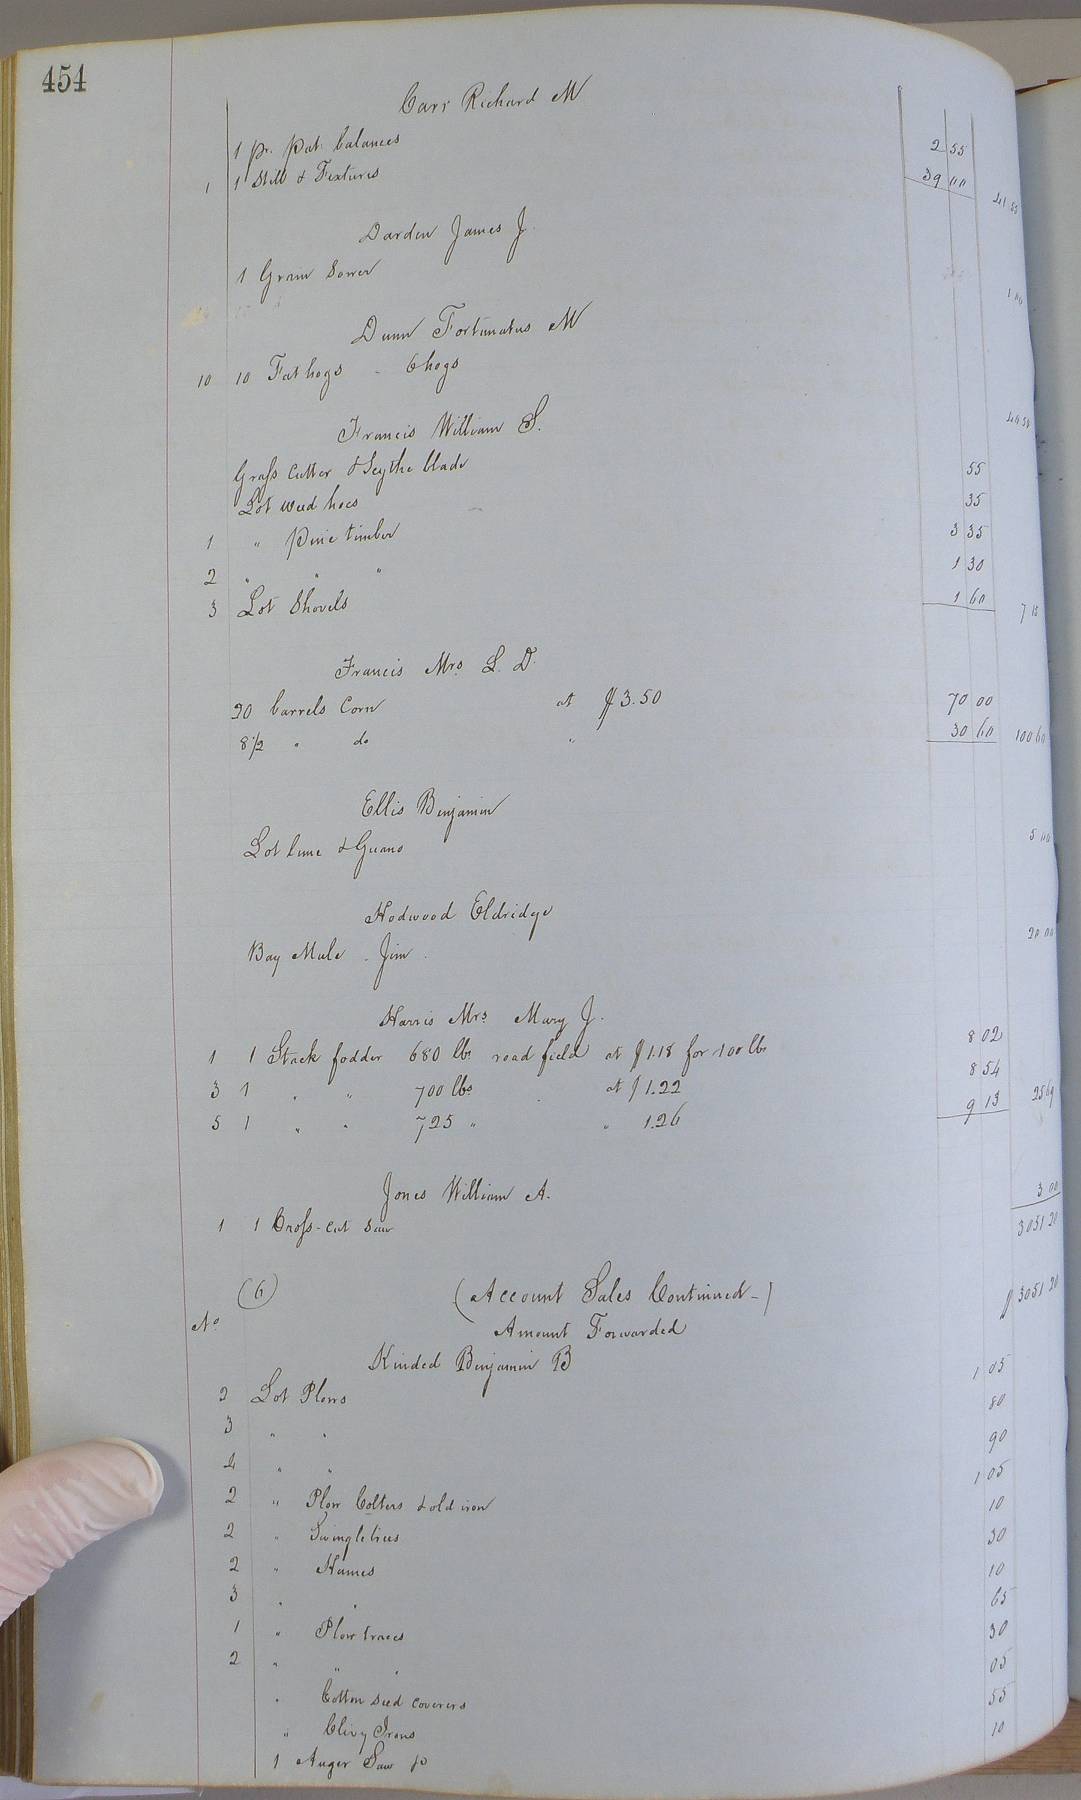 454
Carr Richard M
1 pr. pat. balances 2 55
1 1 Still & Fixtures 39 00 41 55
Darden James J.
1 Grain Sower 1 00
Dunn Fortunatus M
10 10 Fat hogs - 6 hogs
Francis William S.
Grass Cutter & Scythe blade 55
Lot weed hoes 35
1 " Pine timber 3 35
2 " " " 1 30
3 Lot Shovels 1 60 7 15
Francis Mrs. L. D.
20 barrels Corn at $3.50 70 00
8 1/2 " do " 30 60 100 60
Ellis Benjamin
Lot lime & Guano 5 00
Nodwood Eldridge
Bay Mule - Jim. 20 00
Harris Mrs. Mary J.
1 1 Stack fodder 680 lbs road field at $1.18 for 100 lbs 8 02
3 1 " " 700 lbs. at $1.22 8 54
5 1 " " 725 " " 1.26 9 13 25 69
Jones William A. 3 00
1 1 Cross-cut saw 3051 20
(6) (Account Sales Continued-) $ 3051 20
No. Amount Forwarded
Kinded Benjamin B
2 Lot Plows 1 05
3 " " 80
4 " " 90
2 " Plow Colters & old iron 1 05
2 " Swingletrees 10
2 " Hames 30
3 " " 10
1 " Plow traces 65
2 " " " 30
" Cotton seed coverers 05
" Clivy Irons 55
1 Auger Saw 10